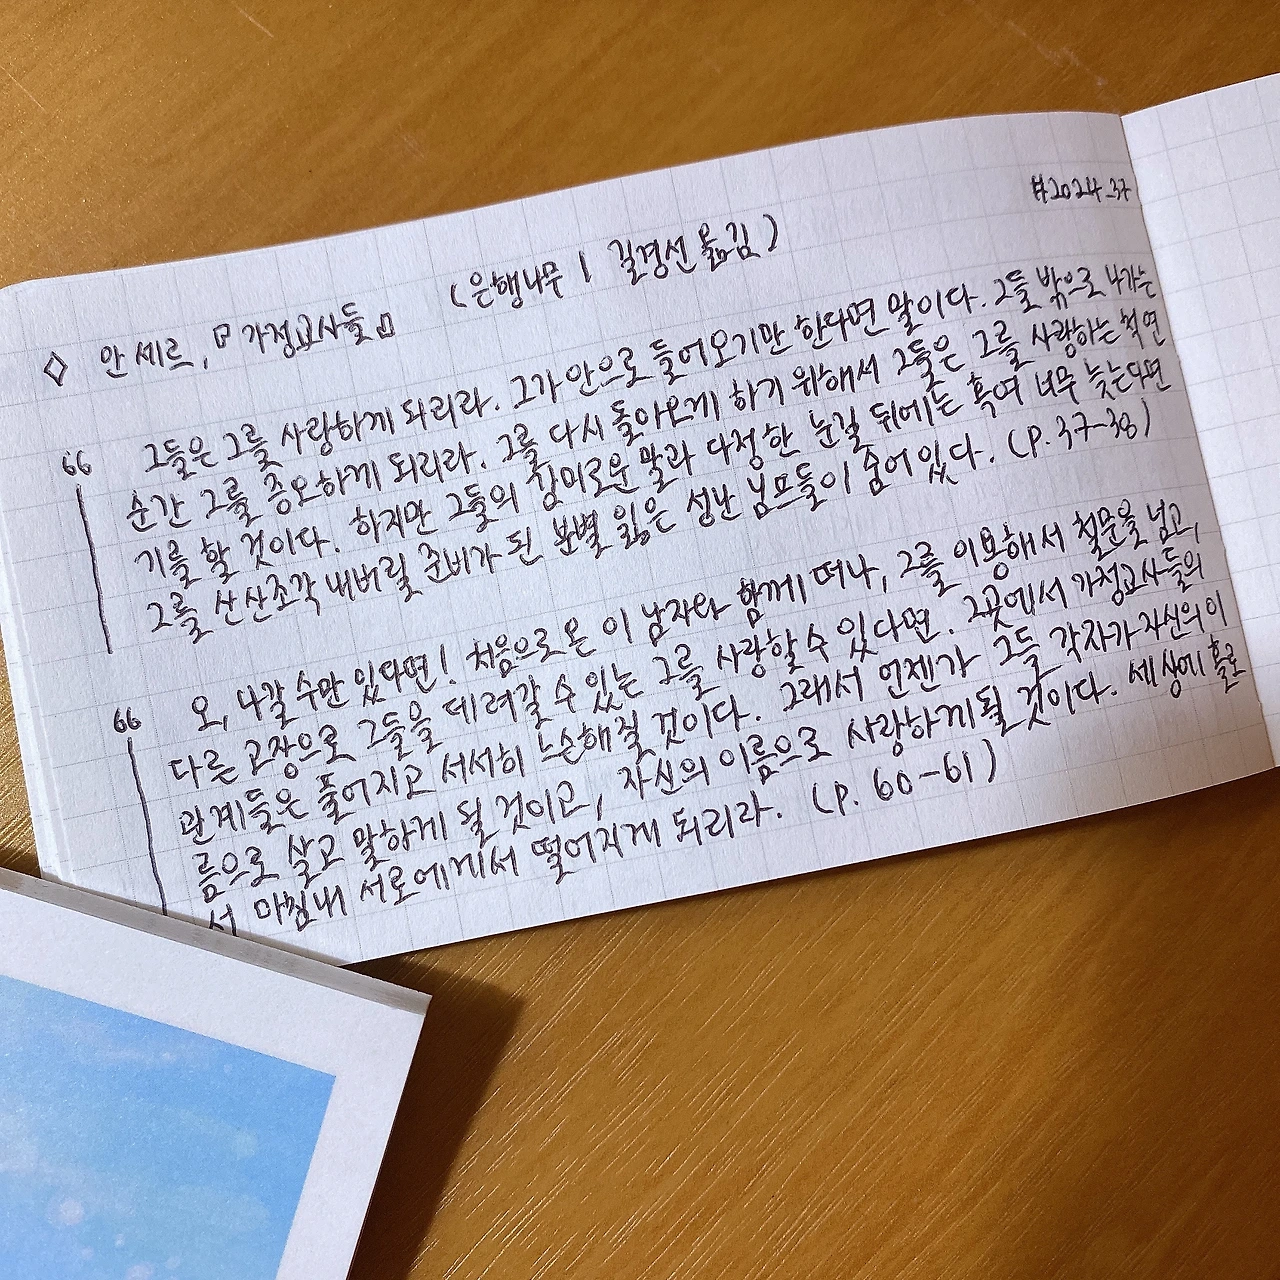 #2024_37
◇ 안 세르, 『가정교사들』 (은행나무 | 길경선 옮김)
“ 그들은 그를 사랑하게 되리라. 그가 안으로 들어오기만 한다면 말이다. 그들 밖으로 나가는
순간 그를 증오하게 되리라. 그를 다시 돌아오게 하기 위해서 그들은 그를 사랑하는 척 연
기를 할 것이다. 하지만 그들의 감미로운 말과 다정한 눈길 뒤에는 혹여 너무 늦는다면
그를 산산조각 내버릴 준비가 된 분별 잃은 성난 님프들이 숨어 있다. (p.37-38)
“ 오, 나갈 수만 있다면! 처음으로 온 이 남자와 함께 떠나, 그를 이용해서 철문을 넘고,
다른 고장으로 그들을 데려갈 수 있는 그를 사랑할 수 있다면. 그곳에서 가정교사들의
관계들은 풀어지고 서서히 느슨해질 것이다. 그래서 언젠가 그들 각자가 자신의 이
름으로 살고 말하게 될 것이고, 자신의 이름으로 사랑하게 될 것이다. 세상에 홀로
서 마침내 서로에게서 떨어지게 되리라. (p. 60-61)